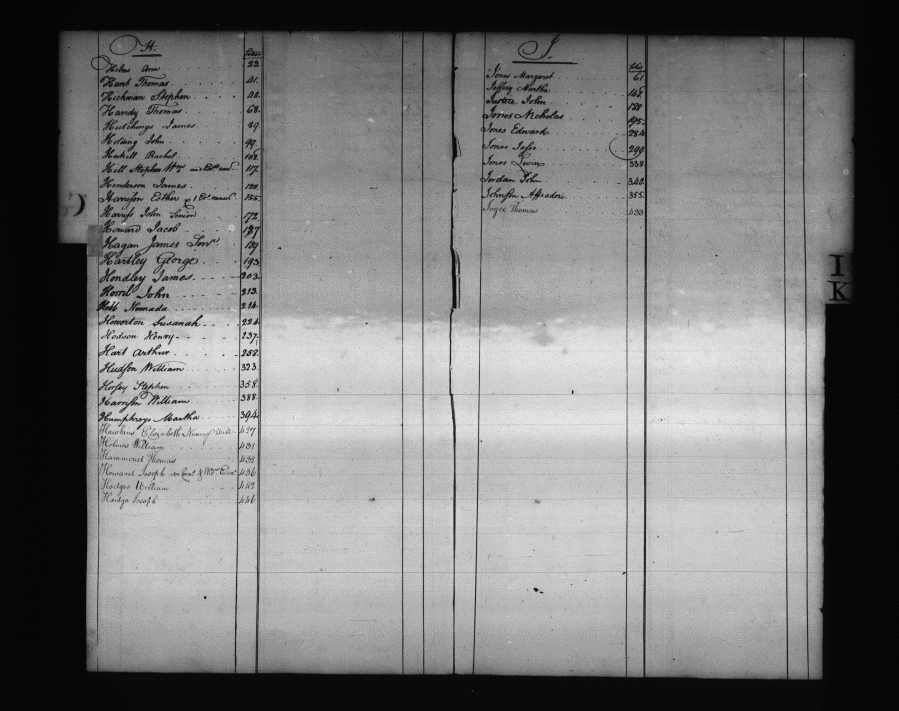 H.
Folio
Helms Ann 23
Hunt Thomas 41
Hickman Stephen
Handy Thomas 68
Hutchings James 89
Holding John 99
Hukill Rachel 108
Hill Stephen 117
Henderson James 120
Harrison Esther 155
Harriss John Senior 172
Howard Jacob 187
Hagan James Senr 189
Hartley George 193
Hendley James 203
Horril John 213
Hebb Nermada 214
Howerton Susanah 224
Hodson Henry 237
Hart Arthur 252
Hudson William 323
Horsey Stephen 358
Harrison William 388
Humphreys Martha 394
Elizabeth 427
Holmes William 431
Hammond Thomas 433
Howard Joseph 436
Hodges William 443
Hodge Joseph 446
J.
Folio
Jones Margaret 61
Jeffery Martha 142
Justice John 158
Jones Nicholas 195
Jones Edward 284
Jones 299
Jones Lewis 338
Jordan John 340
Johnson Affradozi 355
Joyce Thomas 433
I
K